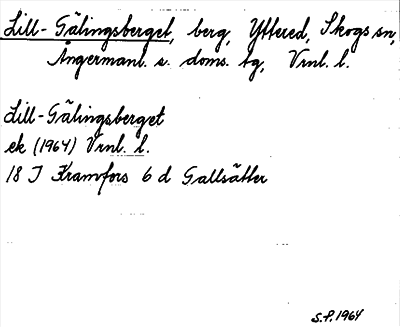 Lill-Gälingsberget, berg, Yttered, Skogs sn,
Ångermanl. s. doms. tg, Vrnl. l.
Lill-Gälingsberget
ek (1964) Vrnl. l.
18 J Kramfors 6 d Gallsätter
S.P. 1964